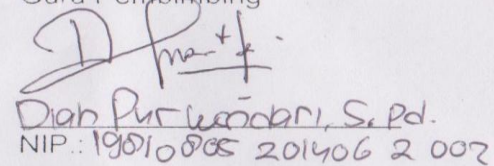 Guru Pembimbing
Diah Purwandari, S.Pd.
NIP.: 19810805 201406 2 002